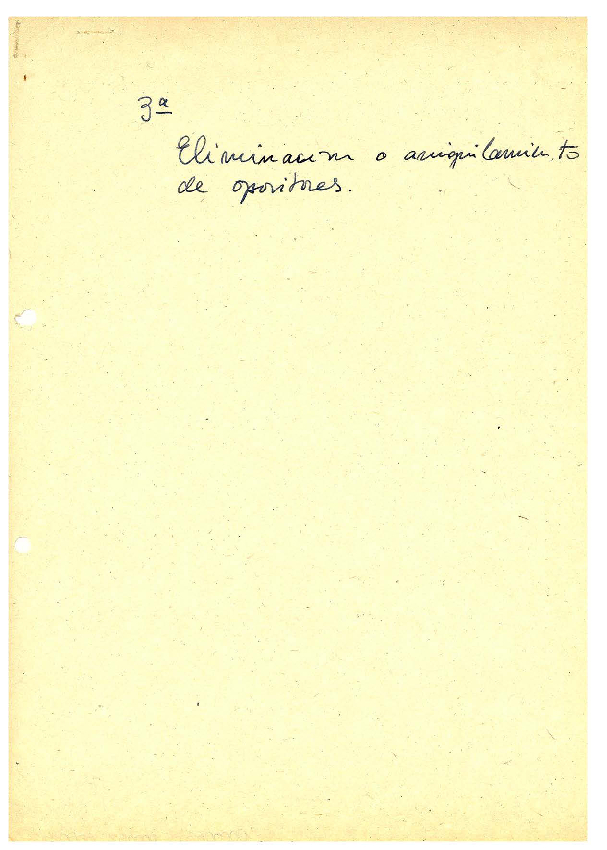 3ª
Eliminacion o aniquilamiento
de opositores.